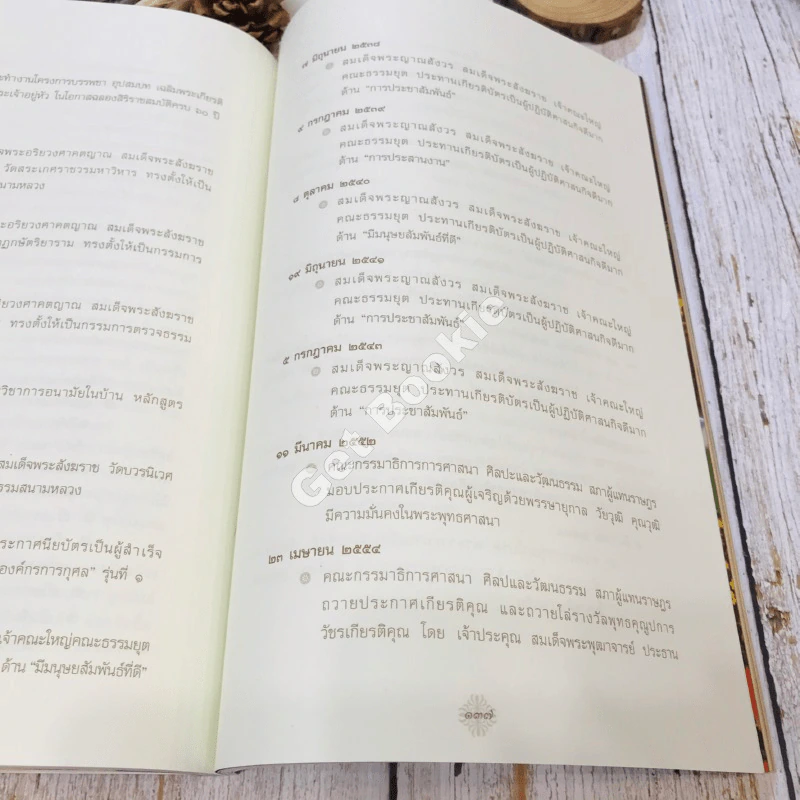 ะทำงานโครงการบรรพชา อุปสมบท เฉลิมพระเกียรติ
ะเจ้าอยู่หัว ในโอกาสฉลองสิริราชสมบัติครบ ๖๐ ปี
พระอริยวงศาคตญาณ สมเด็จพระสังฆราช
วัดสระเกศราชวรมหาวิหาร ทรงตั้งให้เป็น
สนามหลวง
ะอริยวงศาคตญาณ สมเด็จพระสังฆราช
ฏกษัตริยาราม ทรงตั้งให้เป็นกรรมการ
ริยวงศาคตญาณ สมเด็จพระสังฆราช
ทรงตั้งให้เป็นกรรมการตรวจธรรม
วิชาการอนามัยในบ้าน หลักสูตร
สมเด็จพระสังฆราช วัดบวรนิเวศ
รรมสนามหลวง
ระกาศนียบัตรเป็นผู้สำเร็จ
องค์กรการกุศล" รุ่นที่ ๑
เจ้าคณะใหญ่คณะธรรมยุต
ด้าน "มีมนุษยสัมพันธ์ที่ดี"
๗ มิถุนายน ๒๕๓๘
สมเด็จพระญาณสังวร สมเด็จพระสังฆราช เจ้าคณะใหญ่
คณะธรรมยุต ประทานเกียรติบัตรเป็นผู้ปฏิบัติศาสนกิจดีมาก
ด้าน "การประชาสัมพันธ์"
๙ กรกฎาคม ๒๕๓๙
สมเด็จพระญาณสังวร สมเด็จพระสังฆราช เจ้าคณะใหญ่
คณะธรรมยุต ประทานเกียรติบัตรเป็นผู้ปฏิบัติศาสนกิจดีมาก
ด้าน "การประสานงาน"
๘ ตุลาคม ๒๕๔๐
สมเด็จพระญาณสังวร สมเด็จพระสังฆราช เจ้าคณะใหญ่
คณะธรรมยุต ประทานเกียรติบัตรเป็นผู้ปฏิบัติศาสนกิจดีมาก
ด้าน "มีมนุษยสัมพันธ์ที่ดี"
๑๙ มิถุนายน ๒๕๔๑
สมเด็จพระญาณสังวร สมเด็จพระสังฆราช เจ้าคณะใหญ่
คณะธรรมยุต ประทานเกียรติบัตรเป็นผู้ปฏิบัติศาสนกิจดีมาก
ด้าน "การประชาสัมพันธ์"
๕ กรกฎาคม ๒๕๔๓
สมเด็จพระญาณสังวร สมเด็จพระสังฆราช เจ้าคณะใหญ่
คณะธรรมยุต ประทานเกียรติบัตรเป็นผู้ปฏิบัติศาสนกิจดีมาก
ด้าน "การประชาสัมพันธ์"
๑๑ มีนาคม ๒๕๕๒
คณะกรรมาธิการการศาสนา ศิลปะและวัฒนธรรม สภาผู้แทนราษฎร
มอบประกาศเกียรติคุณผู้เจริญด้วยพรรษายุกาล วัยวุฒิ คุณวุฒิ
มีความมั่นคงในพระพุทธศาสนา
๒๓ เมษายน ๒๕๕๔
คณะกรรมาธิการศาสนา ศิลปและวัฒนธรรม สภาผู้แทนราษฎร
ถวายประกาศเกียรติคุณ และถวายโล่รางวัลพุทธคุณูปการ
วัชรเกียรติคุณ โดย เจ้าประคุณ สมเด็จพระพุฒาจารย์ ประธาน
๑๓๗
Get Bookie